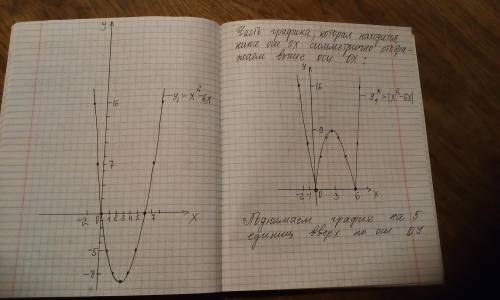 y
16
y₁ = x² - 6x
7
-2 0 1 2 3 4 5 6 7 x
-5
-8
Часть графика, которая находится
ниже оси OX симметрично отобра-
жаем выше оси OX:
y
16
9
-2 -1 0 3 6 x
Поднимаем график на 5
единиц вверх по оси OY